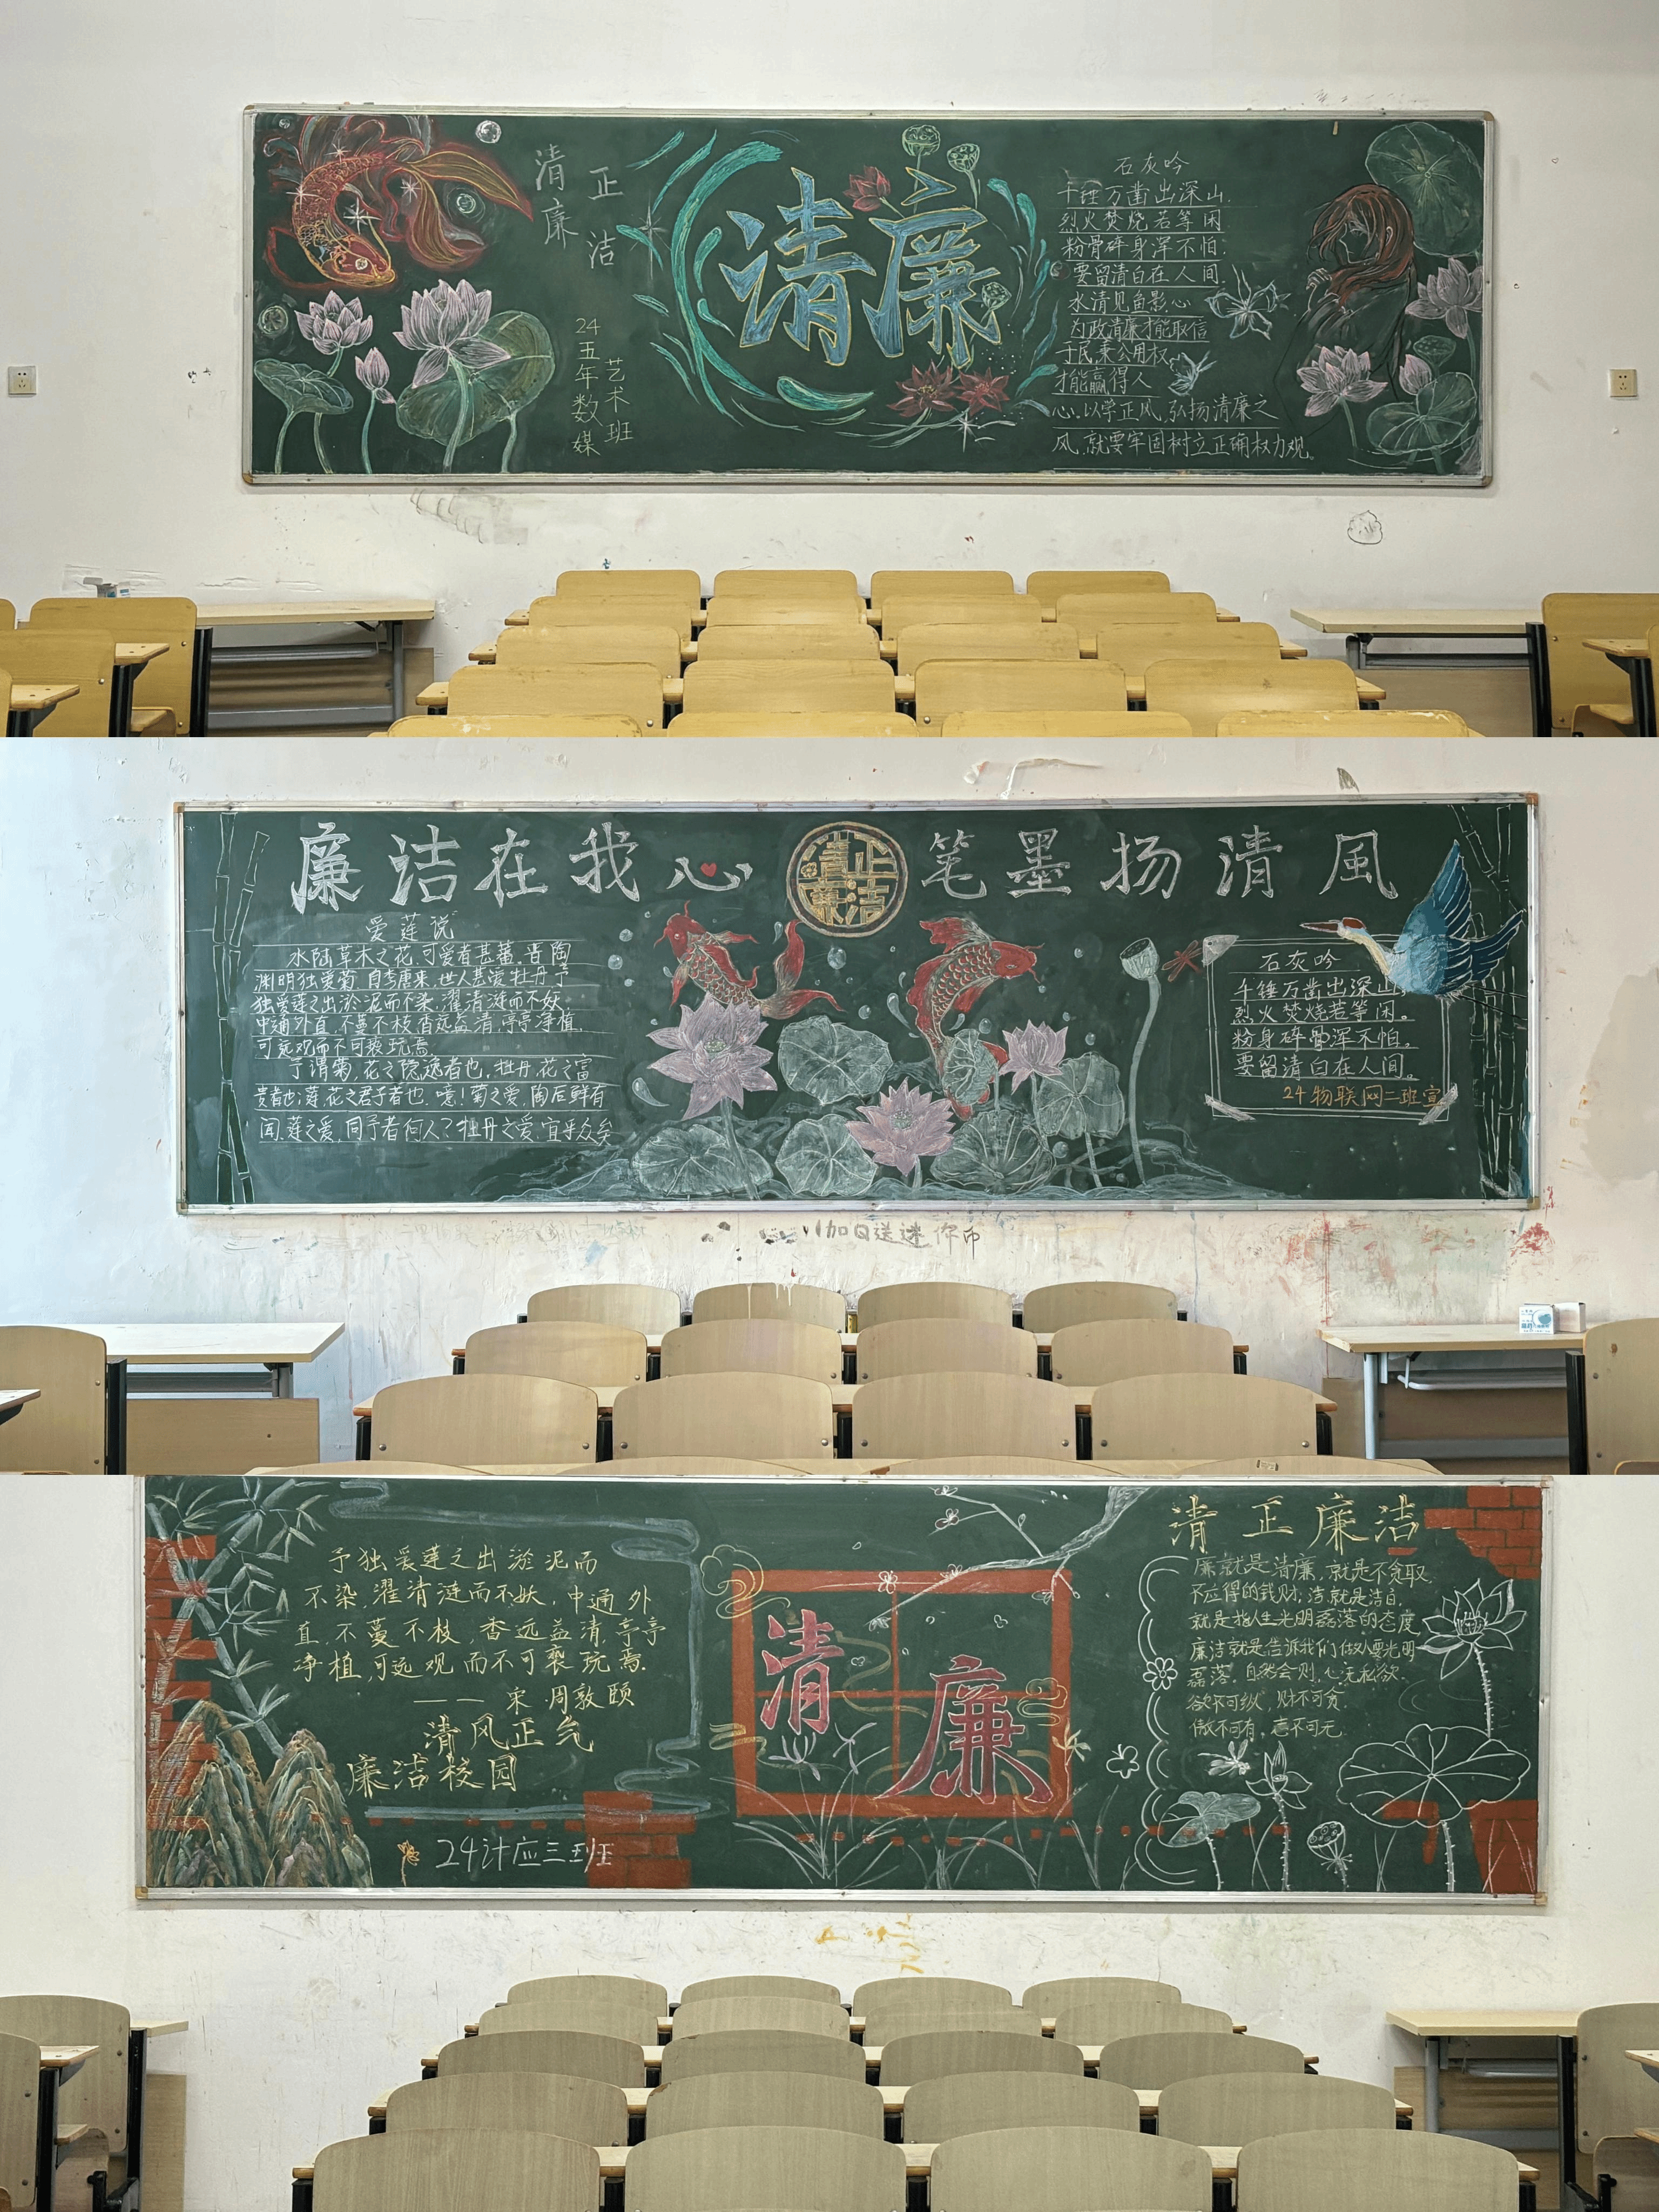 清正
廉洁
24艺术
五年数媒班
清廉
石灰吟
千锤万凿出深山.
烈火焚烧若等闲
粉骨碎身浑不怕.
要留清白在人间.
水清见鱼影.心
为政清廉才能取信
于民.秉公用权.
才能赢得人
心.以学正风.弘扬清廉之
风.就要牢固树立正确权力观。
廉洁在我心
清正廉洁
笔墨扬清風
爱莲说
水陆草木之花,可爱者甚蕃。晋陶
渊明独爱菊.自李唐来,世人甚爱牡丹.予
独爱莲之出淤泥而不染,濯清涟而不妖.
中通外直,不蔓不枝,香远益清,亭亭净植,
可远观而不可亵玩焉.
予谓菊,花之隐逸者也.牡丹,花之富
贵者也;莲,花之君子者也.噫!菊之爱,陶后鲜有
闻.莲之爱,同予者何人?牡丹之爱,宜乎众矣
石灰吟
千锤万凿出深山,
烈火焚烧若等闲。
粉身碎骨浑不怕。
要留清白在人间。
24物联网二班宣
加Q送迷你币
予独爱莲之出淤泥而
不染,濯清涟而不妖,中通外
直,不蔓不枝,香远益清,亭亭
净植,可远观而不可亵玩焉.
——宋·周敦颐
清风正气
廉洁校园
24计应三班
清廉
清正廉洁
廉就是清廉,就是不贪取
不应得的钱财,洁就是洁白,
就是指人生光明磊落的态度
廉洁就是告诉我们做人要光明
磊落,自然会则,心无私欲.
欲不可纵,财不可贪.
傲不可有,志不可无.